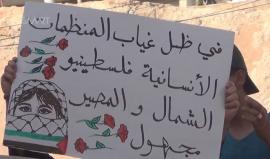 في ظل غياب المنظمات
الأنسانية فلسطينيو
الشمال و المصير
مجهول